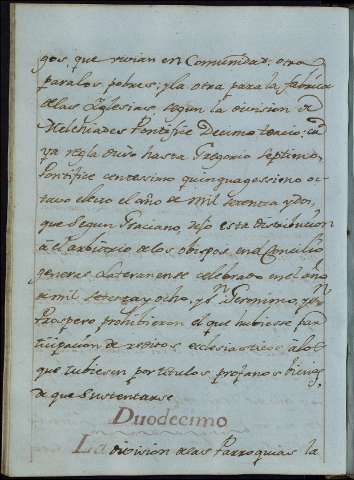 gos, que vivian en Comunidad: otra
para los pobres; y la otra para la fabrica
de las Yglesias, segun la division de
Melchiades Pontifice Decimo tercio: cu
ya regla duro hasta Gregorio Septimo,
Pontifice centesimo quinquagessimo oc
tavo electo el año de mil setenta y dos,
que segun Graciano, dejo esta distribucion
à el arbitrio de los obispos en el Concilio
general Lateranense celebrado en el año
de mil setenta y ocho, y Sn Geronimo, y Sn
Prospero prohibieron el que hubiesse par
ticipacion de reditos ecclesiasticos, à los
que tubiesen por titulos profanos bienes
de que sustentarse
Duodecimo
La division de las Parroquias la